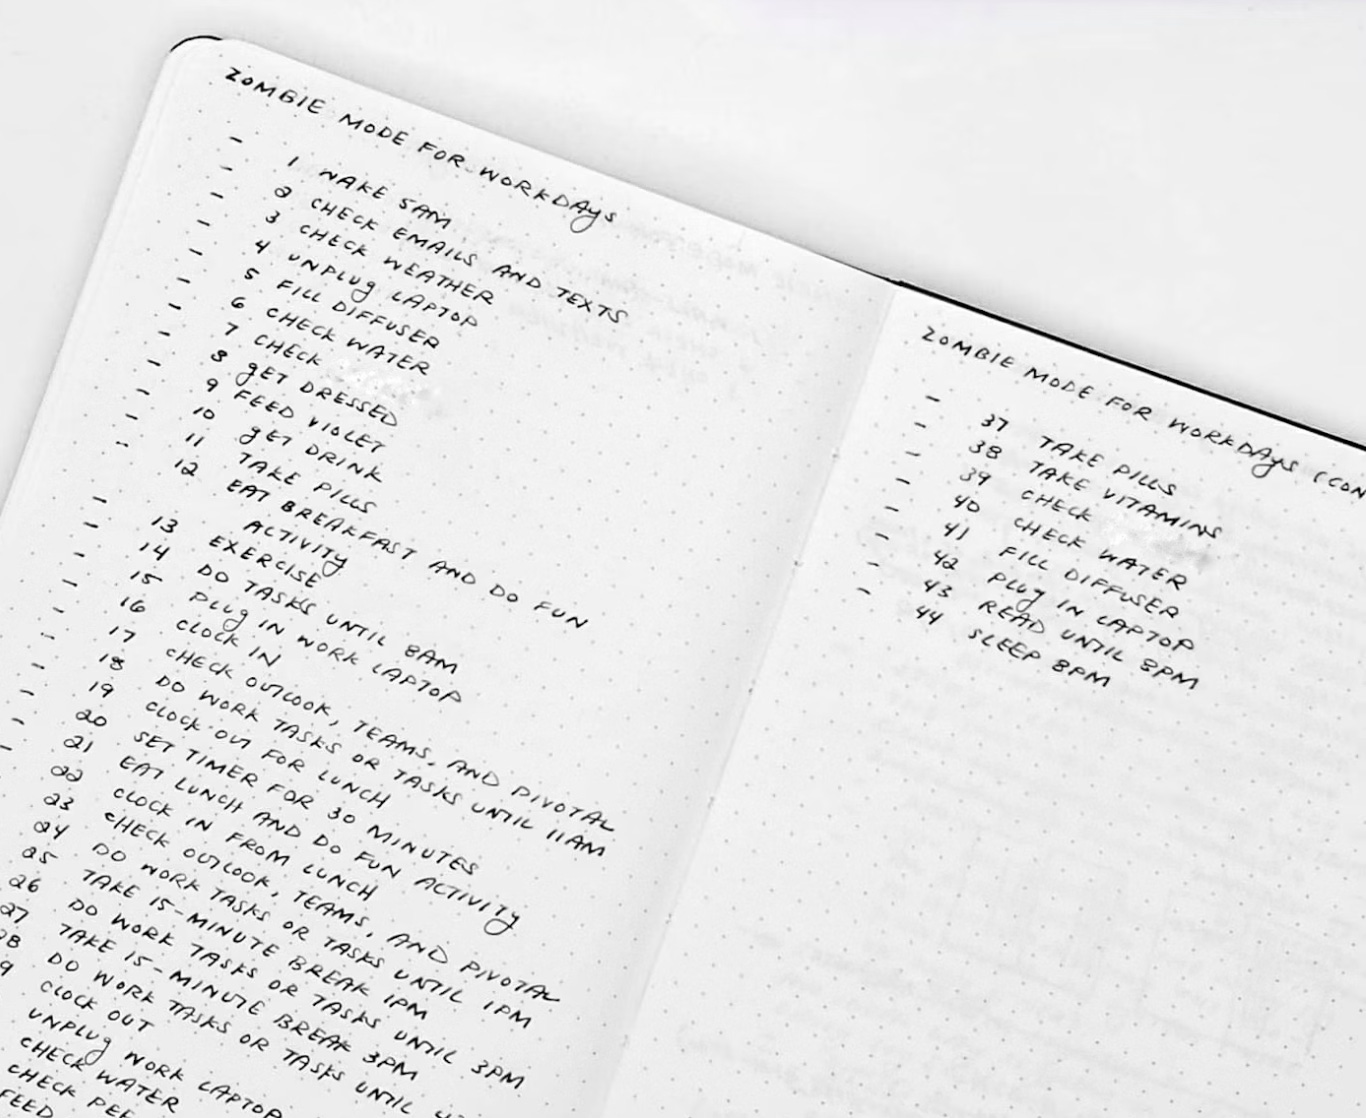 ZOMBIE MODE FOR WORKDAYS
- 1 WAKE 5AM
- 2 CHECK EMAILS AND TEXTS
- 3 CHECK WEATHER
- 4 UNPLUG LAPTOP
- 5 FILL DIFFUSER
- 6 CHECK WATER
- 7 CHECK
- 8 GET DRESSED
- 9 FEED VIOLET
- 10 GET DRINK
- 11 TAKE PILLS
- 12 EAT BREAKFAST AND DO FUN
ACTIVITY
- 13 EXERCISE
- 14 DO TASKS UNTIL 8AM
- 15 PLUG IN WORK LAPTOP
- 16 CLOCK IN
- 17 CHECK OUTLOOK, TEAMS, AND PIVOTAL
- 18 DO WORK TASKS OR TASKS UNTIL 11AM
- 19 CLOCK OUT FOR LUNCH
- 20 SET TIMER FOR 30 MINUTES
- 21 EAT LUNCH AND DO FUN ACTIVITY
- 22 CLOCK IN FROM LUNCH
23 CHECK OUTLOOK, TEAMS, AND PIVOTAL
24 DO WORK TASKS OR TASKS UNTIL 1PM
25 TAKE 15-MINUTE BREAK 1PM
26 DO WORK TASKS OR TASKS UNTIL 3PM
27 TAKE 15-MINUTE BREAK 3PM
28 DO WORK TASKS OR TASKS UNTIL
9 CLOCK OUT
UNPLUG WORK LAPTOP
CHECK WATER
CHECK
FEED
ZOMBIE MODE FOR WORKDAYS (CON
- 37 TAKE PILLS
- 38 TAKE VITAMINS
- 39 CHECK
- 40 CHECK WATER
- 41 FILL DIFFUSER
- 42 PLUG IN LAPTOP
- 43 READ UNTIL 8PM
- 44 SLEEP 8PM